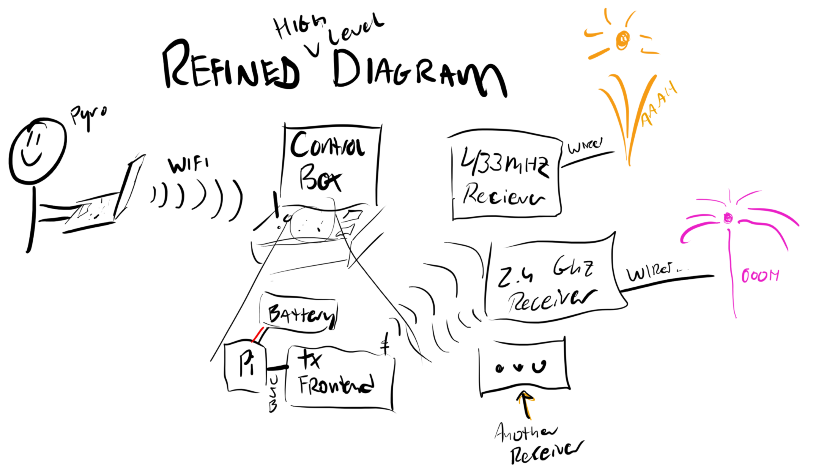 HIGH Level
REFINED DIAGRAM
Pyro
WIFI
Control
Box
433mHZ
Reciever
WIRED
AAAH
2.4 GHZ
Receiver
WIRED..
OOOM
BATTERY
Pi
USB
tx
FRontend
Another
Receiver